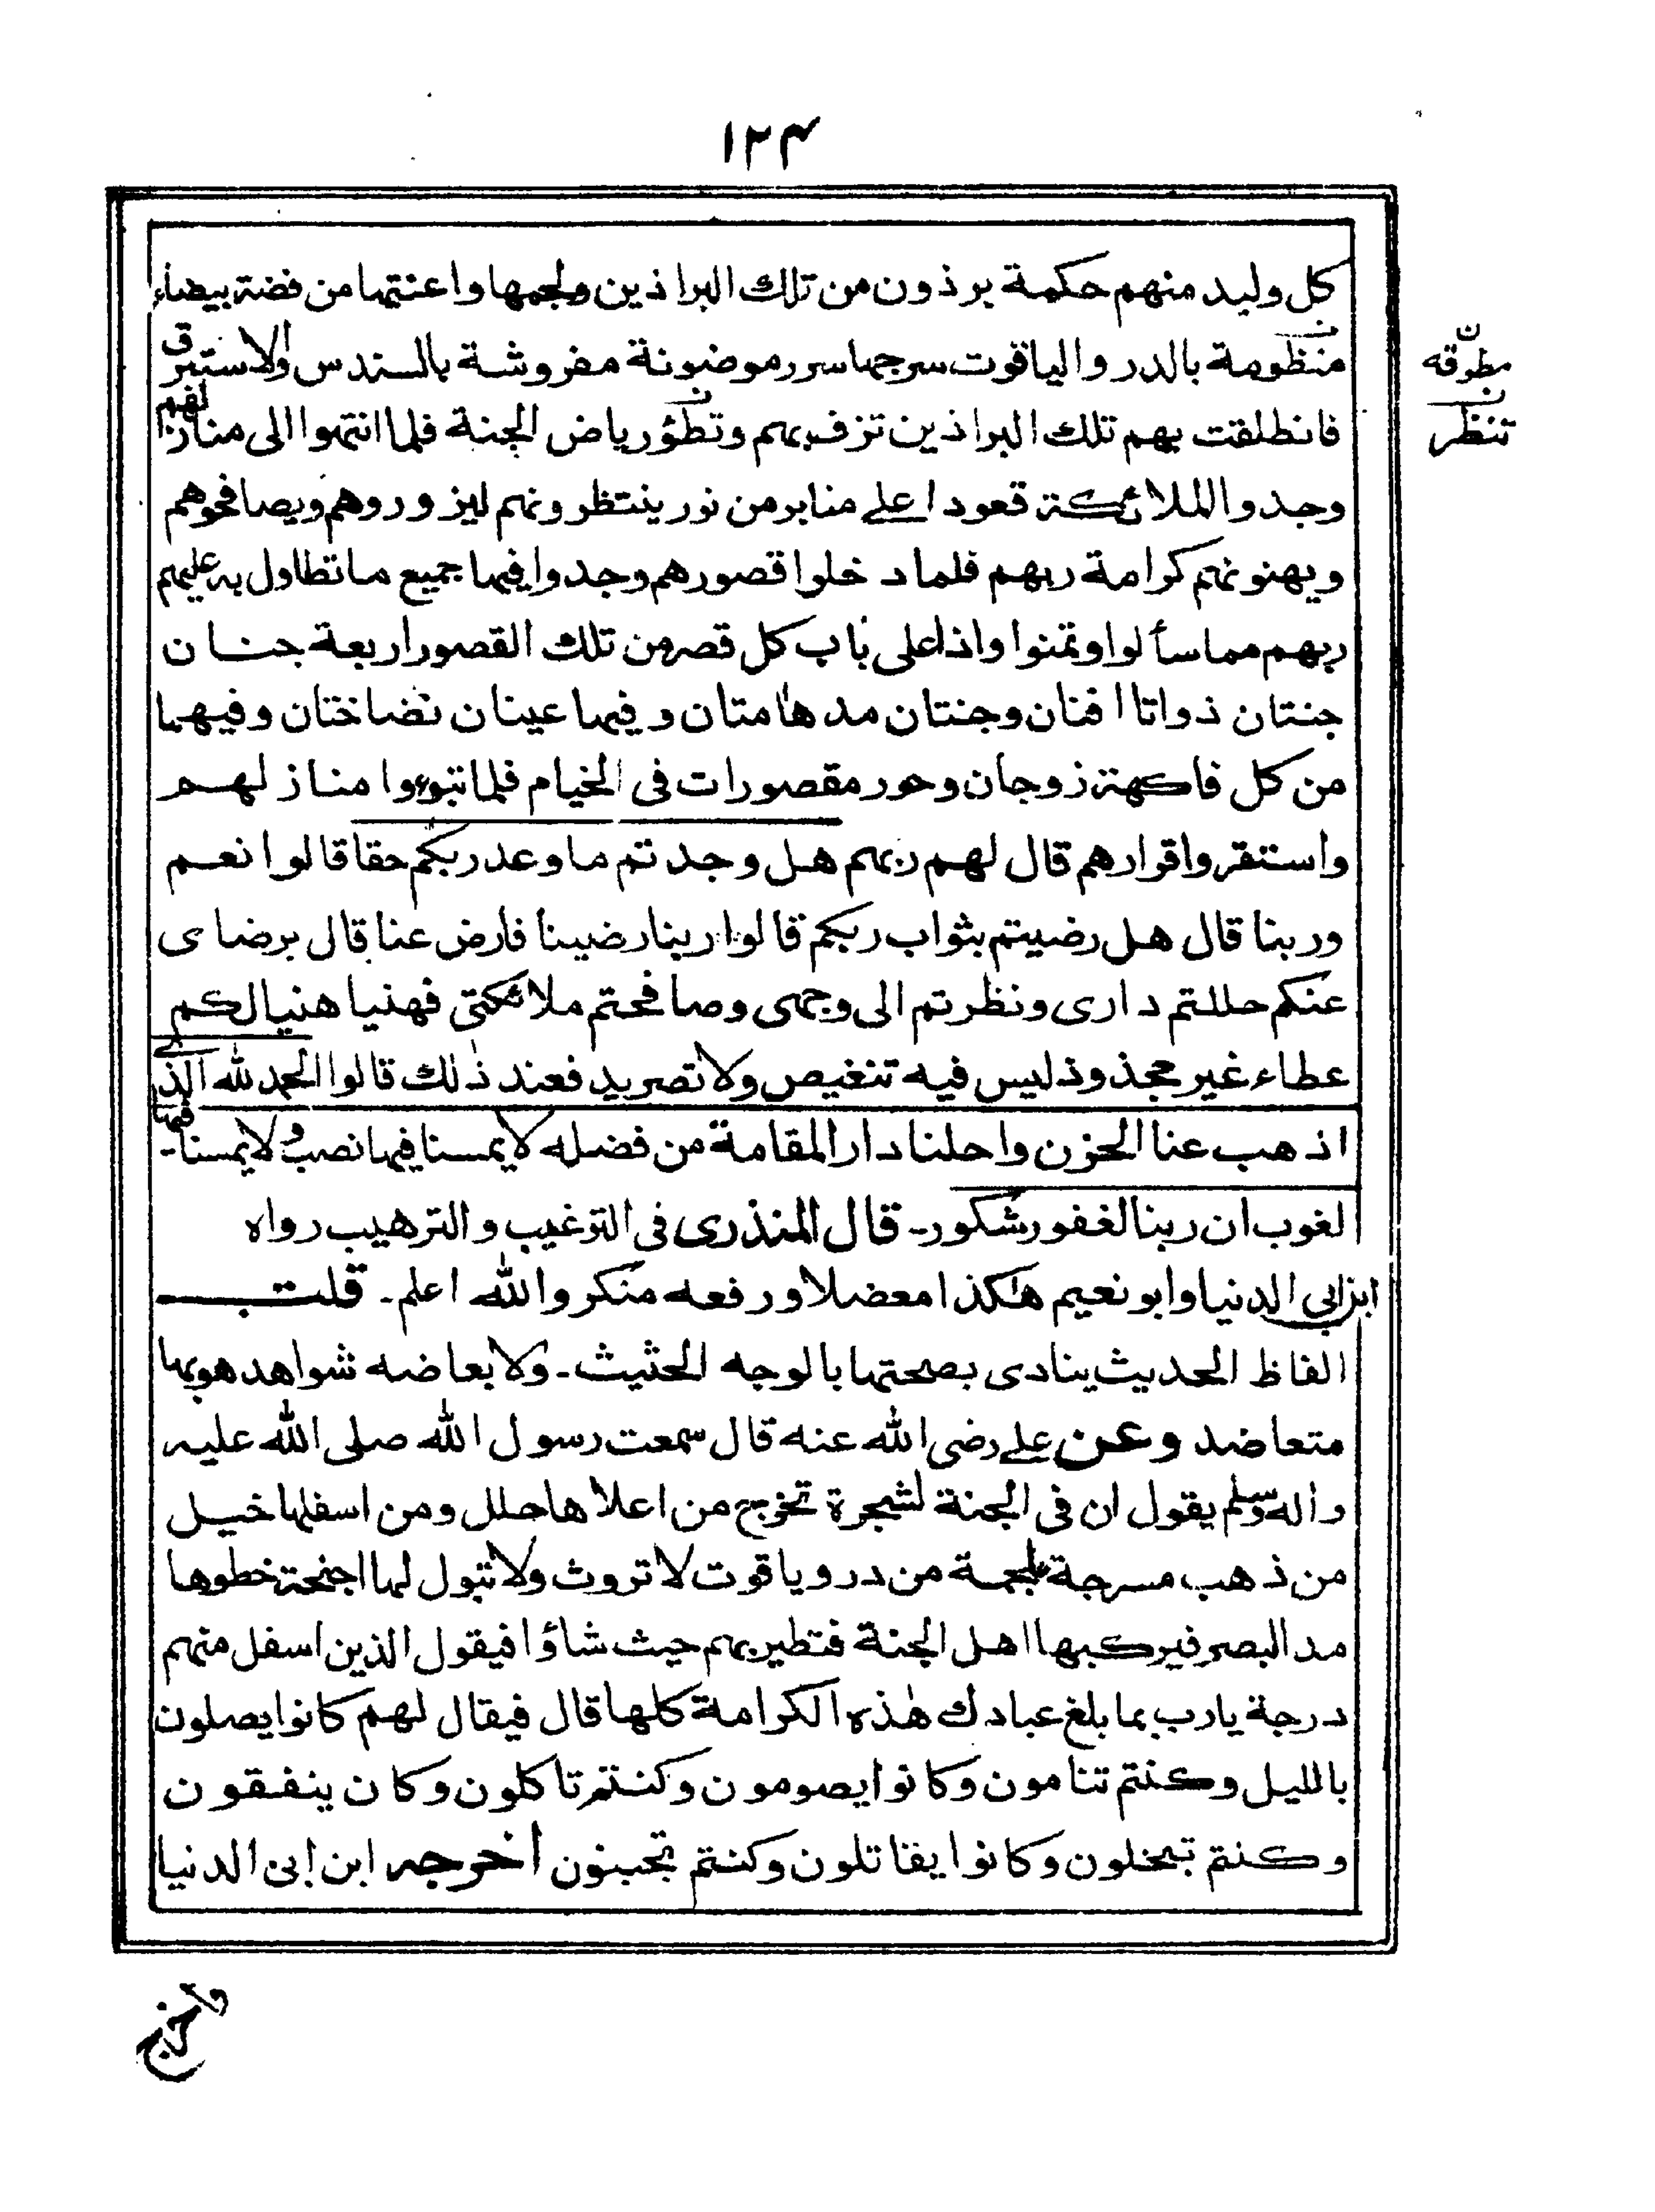 ۱۲۴
كل وليد منهم حكمة برذون من تلك البراذين ولجمها واعنتها من فضة بيضاء
منظومة بالدر والياقوت سرجها سرر موضونة مفروشة بالسندس والاستبرق
فانطلقت بهم تلك البراذين تزف بهم وتطؤ رياض الجنة فلما انتهوا الى منازلهم
وجدوا الملائكة قعودا على منابر من نور ينتظرونهم ليزوروهم ويصافحوهم
ويهنونهم كرامة ربهم فلما دخلوا قصورهم وجدوا فيها جميع ما تطاول به عليهم
ربهم مما سألوا وتمنوا واذا على باب كل قصر من تلك القصور اربعة جنان
جنتان ذواتا افنان وجنتان مدهامتان وفيها عينان نضاختان وفيهما
من كل فاكهة زوجان وحور مقصورات فى الخيام فلما تبوءوا منازلهم
واستقروا قرارهم قال لهم ربهم هل وجدتم ما وعد ربكم حقا قالوا نعم
وربنا قال هل رضيتم بثواب ربكم قالوا ربنا رضينا فارض عنا قال برضاى
عنكم حللتم دارى ونظرتم الى وجهى وصافحتم ملائكتى فهنيا هنيا لكم
عطاء غير مجذوذ ليس فيه تنغيص ولا تصريد فعند ذلك قالوا الحمد لله الذى
اذهب عنا الحزن واحلنا دار المقامة من فضله لا يمسنا فيها نصب ولا يمسنا فيها
لغوب ان ربنا لغفور شكور۔ قال المنذرى فى الترغيب والترهيب رواه
ابن ابي الدنيا وابو نعيم هكذا معضلا ورفعه منكر والله اعلم۔ قلت
الفاظ الحديث ينادى بصحتها بالوجه الحثيث۔ ولا بعاضه شواهد هو بها
متعاضد وعن على رضى الله عنه قال سمعت رسول الله صلى الله عليه
واله وسلم يقول ان فى الجنة لشجرة تخرج من اعلاها حلل ومن اسفلها خيل
من ذهب مسرجة ملجمة من در وياقوت لا تروث ولا تبول لها اجنحة خطوها
مد البصر فيركبها اهل الجنة فتطير بهم حيث شاؤا فيقول الذين اسفل منهم
درجة يارب بما بلغ عبادك هذه الكرامة كلها قال فيقال لهم كانوا يصلون
بالليل وكنتم تنامون وكانوا يصومون وكنتم تاكلون وكان ينفقون
وكنتم تبخلون وكانوا يقاتلون وكنتم تجبنون اخرجه ابن ابى الدنيا
ن
مطوقه
ن
تنظر
واخرج